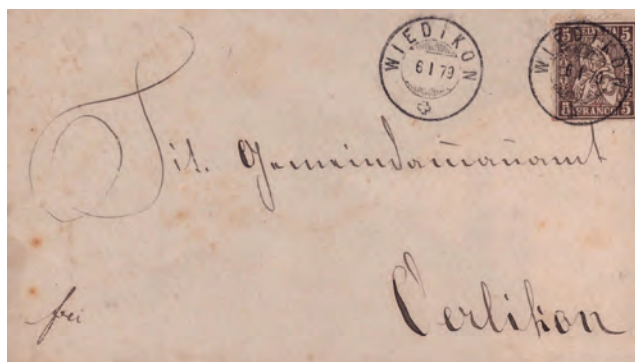 WIEDIKON
6 I 79
WIEDIKON
5 5
5 FRANCO 5
Tit. Gemeindam̄an̄amt
Oerlikon
frei